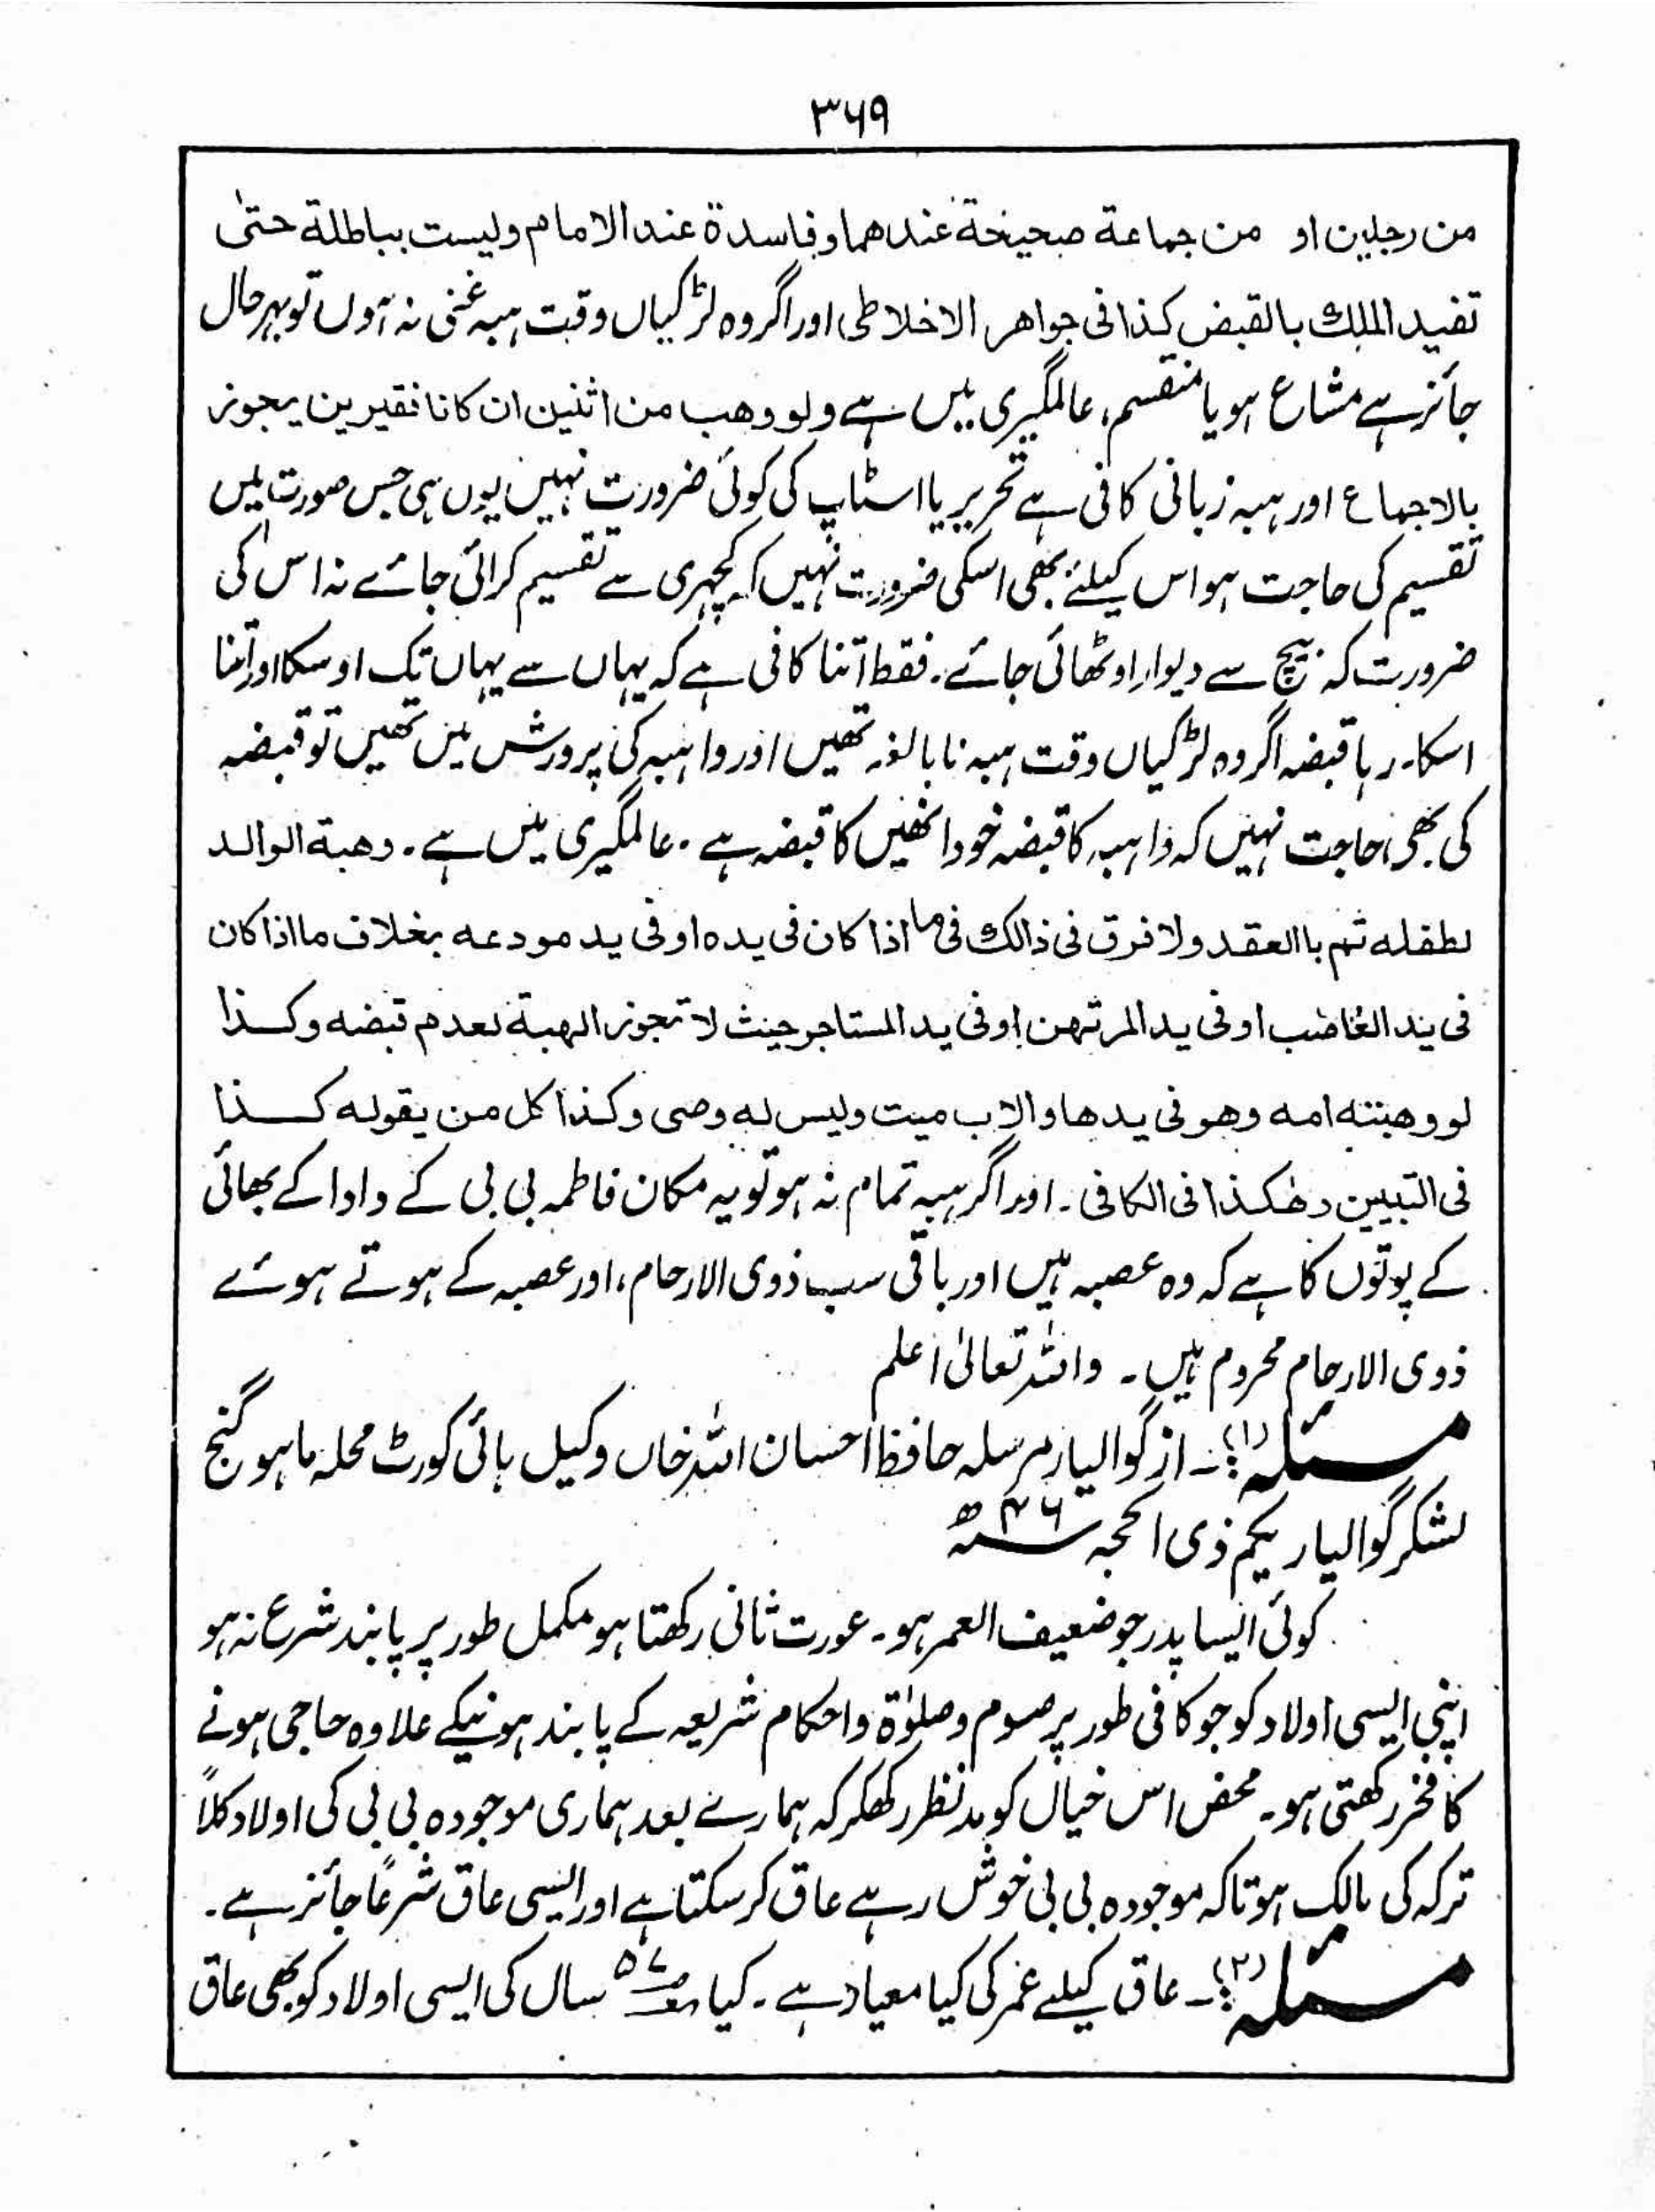 ۳۶۹
من رجلين او من جماعة صحيحة عندهما وفاسدة عند الامام وليست بباطلة حتىٰ
تفيد الملك بالقبض كذا فى جواهر الاخلاطى اور اگر وہ لڑکیاں وقت ہبہ غنی نہ ہوں تو بہر حال
جائز ہے مشاع ہو یا منقسم، عالمگیری میں ہے ولو وهب من اثنين ان كانا فقيرين يجوز
بالاجماع اور ہبہ زبانی کافی ہے تحریر یا اسٹاپ کی کوئی ضرورت نہیں یوں ہی جس صورت میں
تقسیم کی حاجت ہو اس کیلئے بھی اسکی ضرورت نہیں کہ کچہری سے تقسیم کرائی جائے نہ اس کی
ضرورت کہ بیچ سے دیوار اوٹھائی جائے۔ فقط اتنا کافی ہے کہ یہاں سے یہاں تک اوسکا اور اتنا
اسکا۔ رہا قبضہ اگر وہ لڑکیاں وقت ہبہ نابالغہ تھیں اور واہبہ کی پرورش میں تھیں تو قبضہ
کی بھی حاجت نہیں کہ واہبہ کا قبضہ خود انھیں کا قبضہ ہے۔ عالمگیری میں ہے۔ وهبة الوالد
لطفله تتم باالعقد ولا فرق فى ذالك فى ما اذا كان فى يده او فى يد مودعه بخلاف ما اذا كان
فى يد الغاضب او فى يد المرتهن او فى يد المستاجر حيث لا تجوز الهبة لعدم قبضه وكذا
لو وهبته امه وهو فى يدها والاب ميت وليس له وصى وكذا كل من يقوله كذا
فى التبيين وهكذا فى الكافى۔ اور اگر ہبہ تمام نہ ہو تو یہ مکان فاطمہ بی بی کے دادا کے بھائی
کے پوتوں کا ہے کہ وہ عصبہ ہیں اور باقی سب ذوی الارحام، اور عصبہ کے ہوتے ہوئے
ذوی الارحام محروم ہیں۔ واللہ تعالیٰ اعلم
مسئلہ (۱)؛۔ از گوالیار مرسلہ حافظ احسان اللہ خاں وکیل ہائی کورٹ محلہ ماہو گنج
لشکر گوالیار یکم ذی الحجہ ۴۶ھ
کوئی ایسا پدر جو ضعیف العمر ہو۔ عورت ثانی رکھتا ہو مکمل طور پر پابند شرع نہ ہو
اپنی ایسی اولاد کو جو کافی طور پر صوم وصلوٰۃ واحکام شریعہ کے پابند ہونیکے علاوہ حاجی ہونے
کا فخر رکھتی ہو۔ محض اس خیال کو مدنظر رکھکر کہ ہمارے بعد ہماری موجودہ بی بی کی اولاد کلاً
ترکہ کی مالک ہو تاکہ موجودہ بی بی خوش رہے عاق کر سکتا ہے اور ایسی عاق شرعاً جائز ہے۔
مسئلہ (۲)؛۔ عاق کیلئے عمر کی کیا معیاد ہے۔ کیا ۵۷ سال کی ایسی اولاد کو بھی عاق